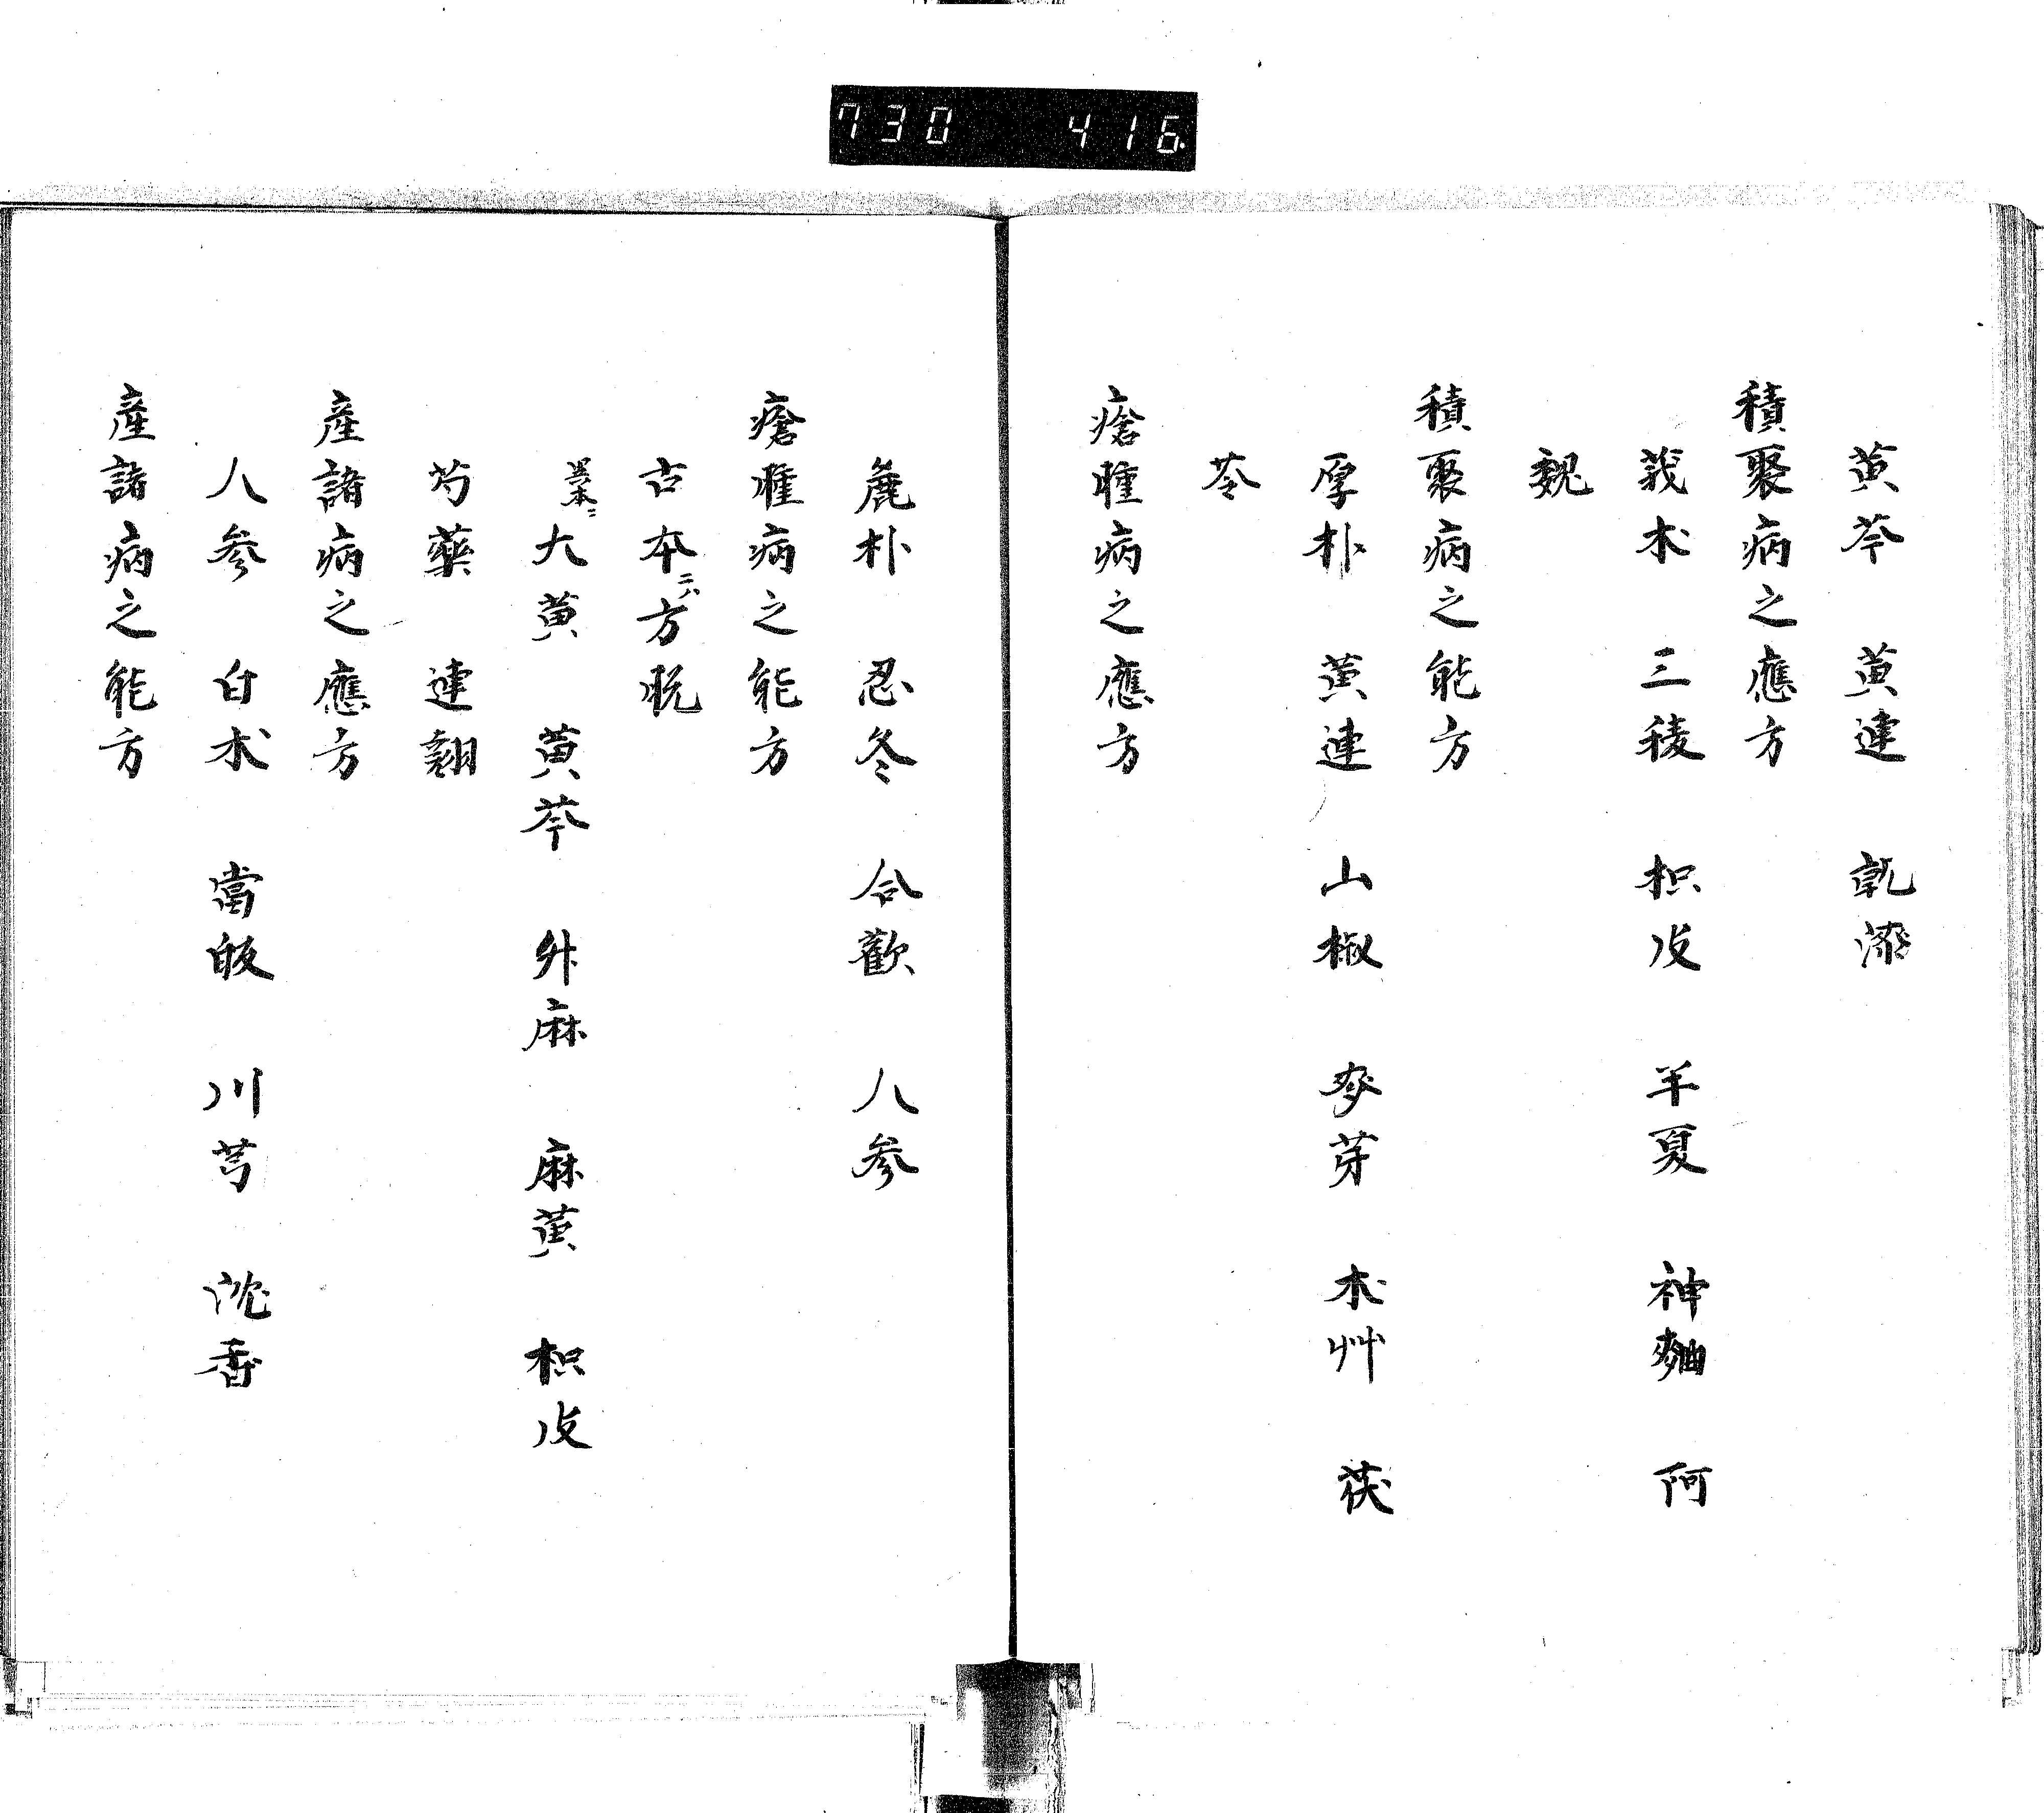 730 416
黄芩 黄連 乾漆
積聚病之應方
莪术 三稜 枳皮 半夏 神麯 阿
魏
積聚病之能方
厚朴 黄連 山椒 麥芽 木艸 茯
苓
瘡腫病之應方
麁朴 忍冬 合歡 人參
瘡腫病之能方
古本ニハ方脱
大黄 黄芩 舛麻 麻黄 枳皮
芍藥 連翹
產諸病之應方
人參 白朮 當皈 川芎 沈香
產諸病之能方